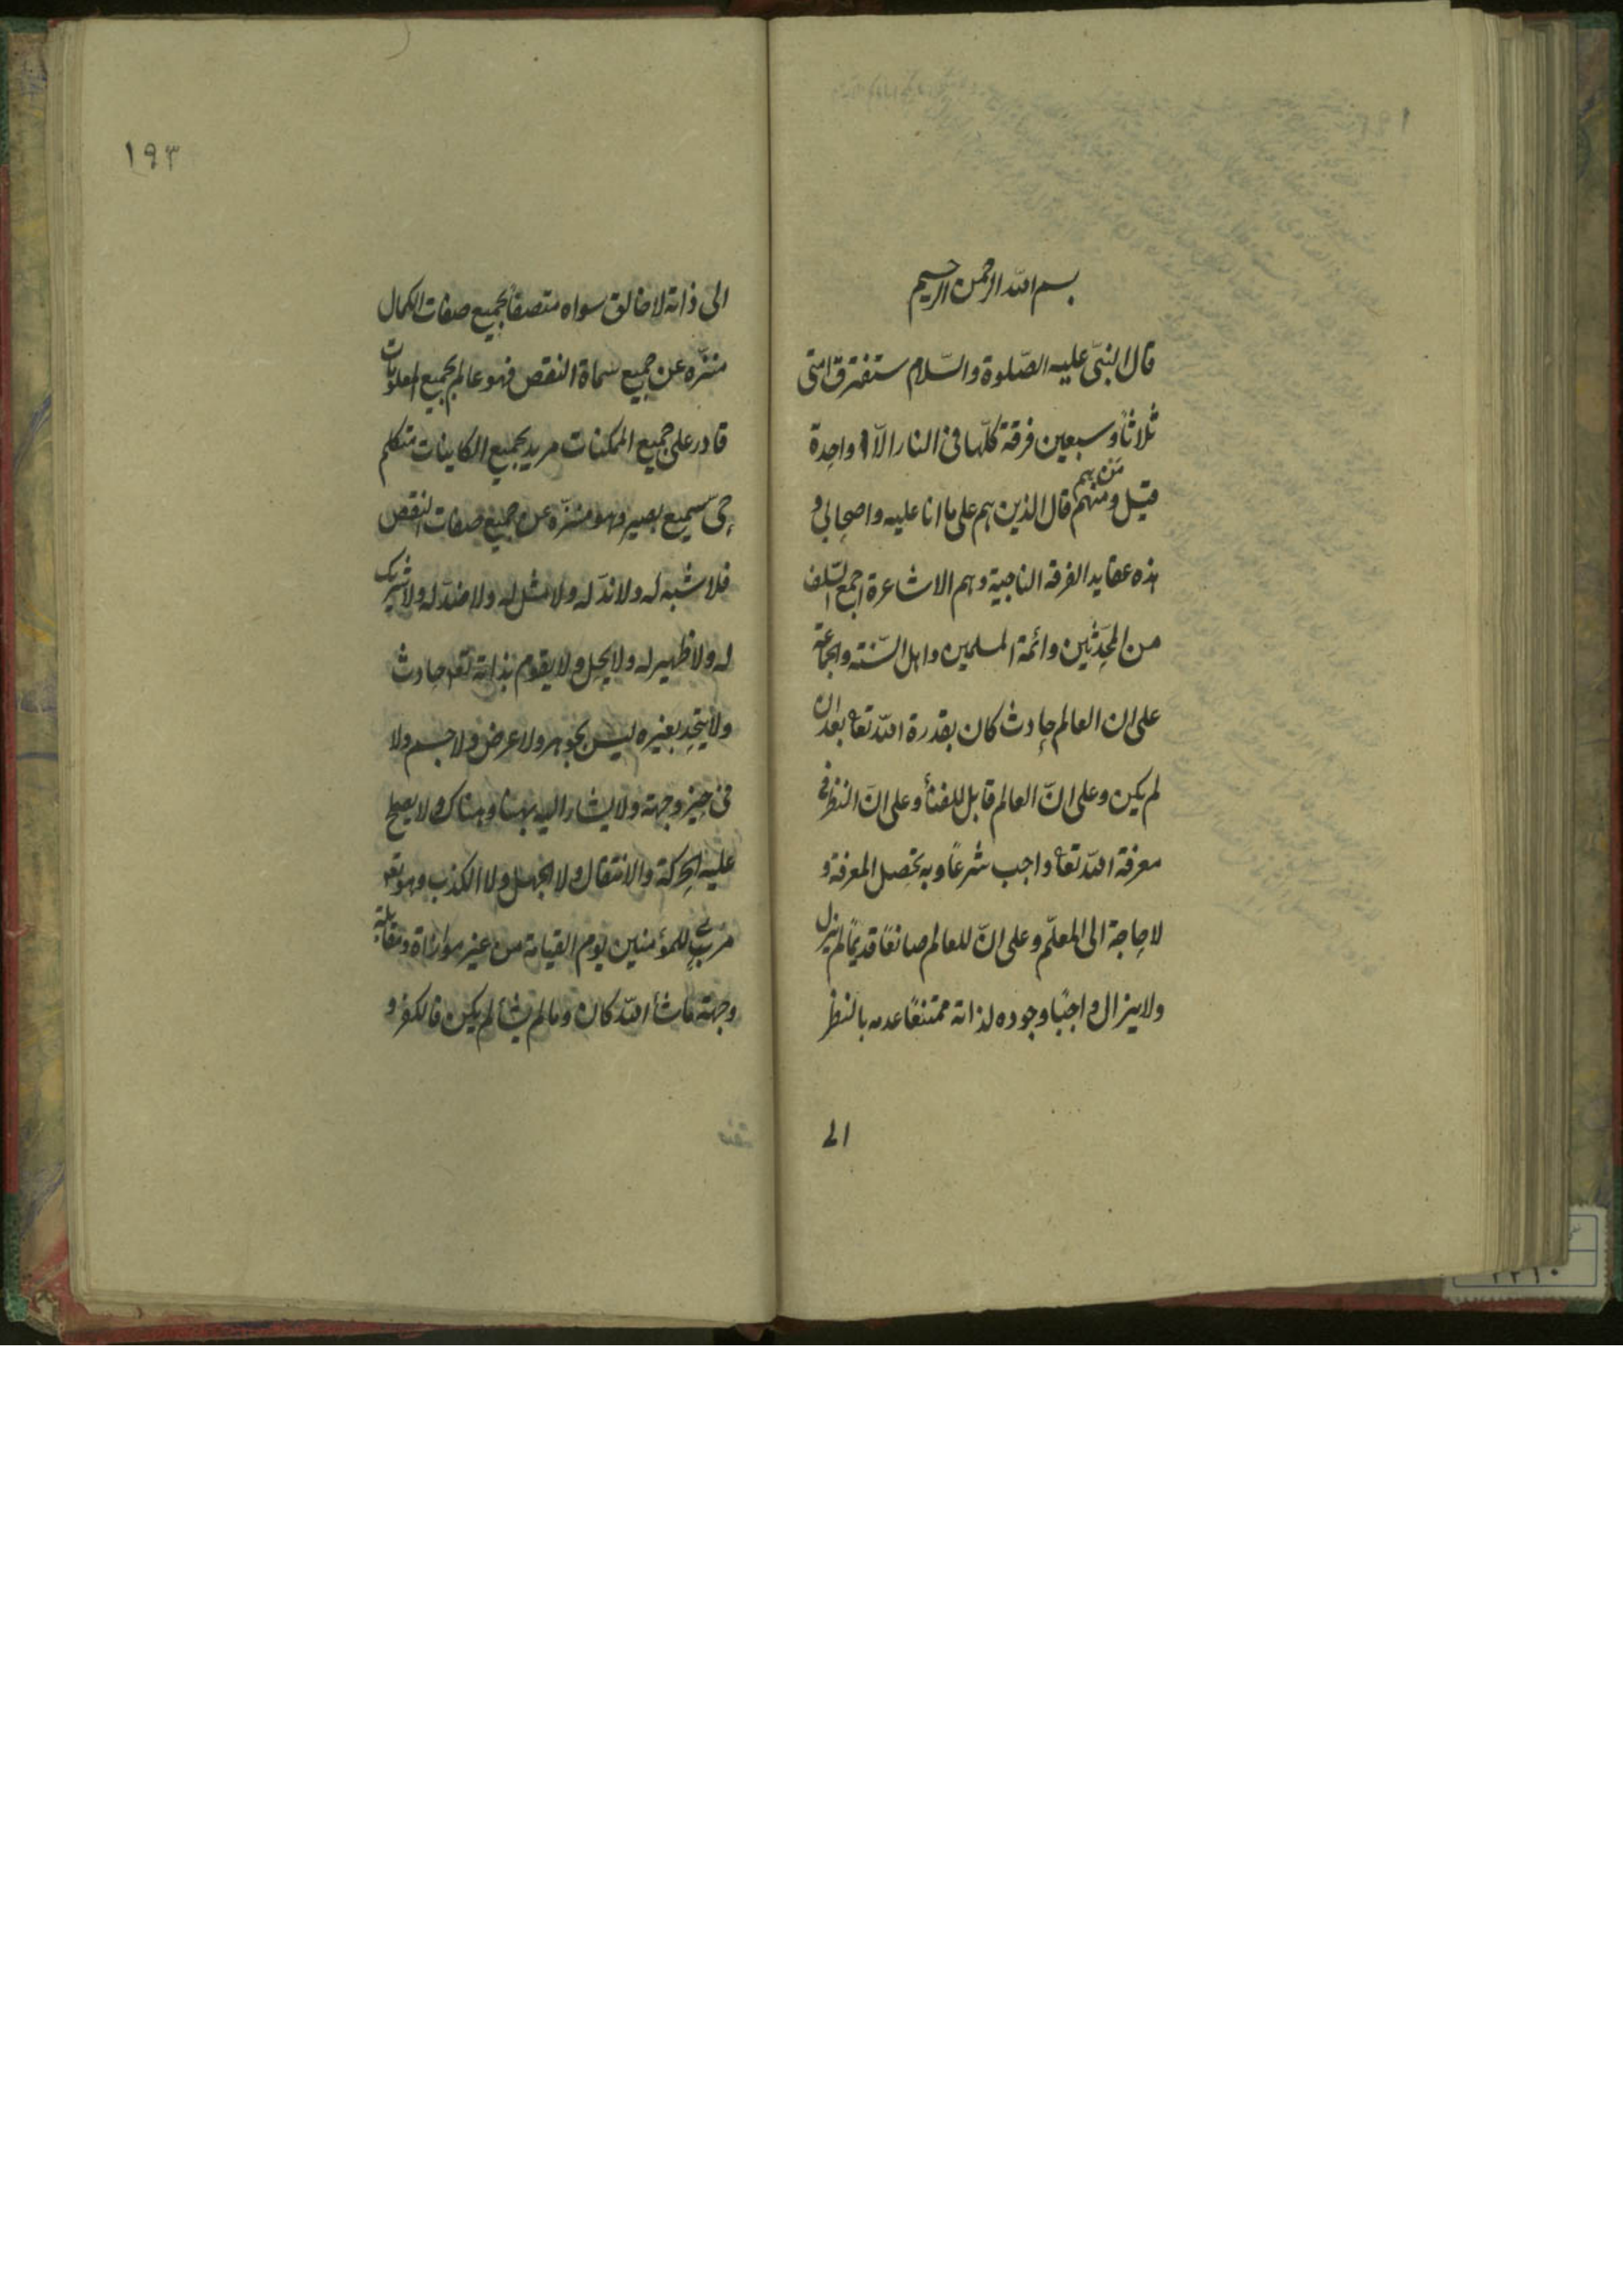 بسم الله الرحمن الرحيم
قال النبىّ عليه الصّلوة والسّلام ستفترق امتى
ثلاثًا وسبعين فرقة كلّها فى النار الاّ واحدة
قيل ومنهم من هم قال الذين هم على ما انا عليه واصحابى و
هذه عقايد الفرقة الناجية وهم الاشاعرة اجمع السّلف
من المحدّثين وائمة المسلمين واهل السّنة والجماعة
على ان العالم حادث كان بقدرة الله تعا بعد ان
لم يكن وعلى انّ العالم قابل للفنأ وعلى انّ النظر فى
معرفة الله تعا واجب شرعًا وبه تحصل المعرفة و
لا حاجة الى المعلّم وعلى انّ للعالم صانعًا قديمًا لم يزل
ولا يزال واجبًا وجوده لذاته ممتنعًا عدمه بالنظر
الى
١٩٣
الى ذاته لا خالق سواه متصفا بجميع صفات الكمال
منزّه عن جميع سماة النقص فهو عالم بجميع المعلومات
قادر على جميع الممكنات مريد بجميع الكاينات متكلم
حى سميع بصير وهو منزّه عن جميع صفات النقص
فلا شبه له ولا ندّ له ولا مثل له ولا ضدّ له ولا شريك
له ولا ظهير له ولا يحل ولا يقوم بذاته تعه حادث
ولا يتحد بغيره ليس بجوهر ولا عرض ولا جسم ولا
فى حيز وجهة ولا يشار اليه بهنا وهناك ولا يصح
عليه الحركة والانتقال ولا الجهل ولا الكذب وهو تعه
مرئى للمؤمنين يوم القيامة من غير موازاة ومقابلة
وجهة ماشأ الله كان ومالم يشألم يكن فالكفر و